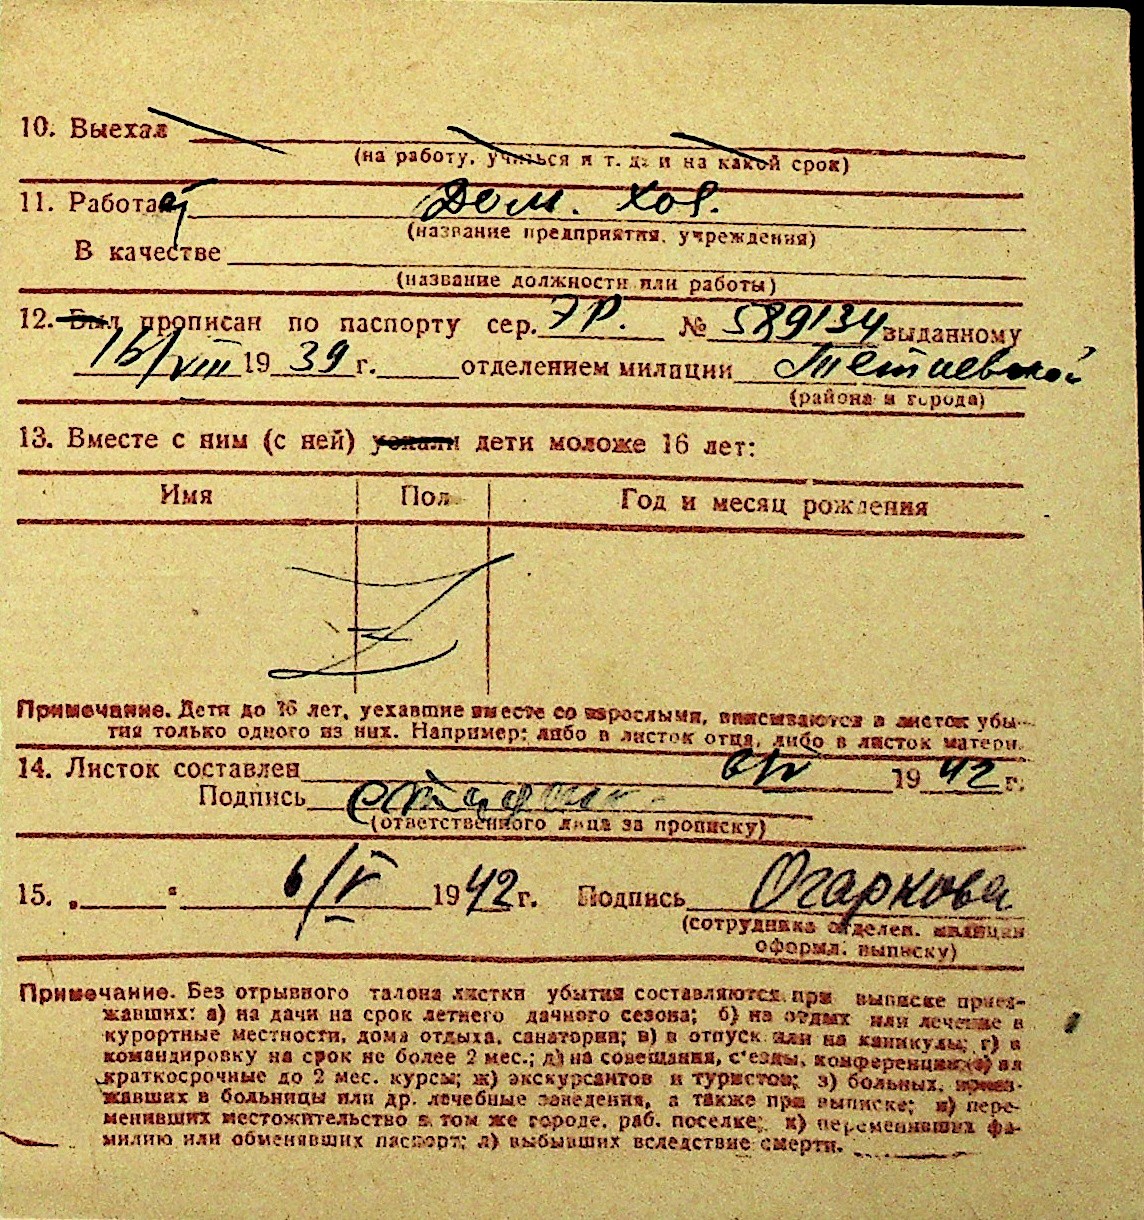 10. Выехал
(на работу, учиться и т. д. и на какой срок)
11. Работает Дом. Хоз.
(название предприятия, учреждения)
В качестве
(название должности или работы)
12. Был прописан по паспорту сер. ЭР. № 589134 выданному
16/VIII 1939 г. отделением милиции
(района и города)
13. Вместе с ним (с ней) уехали дети моложе 16 лет:
Имя Пол Год и месяц рождения
Примечание. Дети до 16 лет, уехавшие вместе со взрослыми, вписываются в листок убы-
тия только одного из них. Например: либо в листок отца, либо в листок матери.
14. Листок составлен 6/V 1942 г.
Подпись
(ответственного лица за прописку)
15. „ “ 6/V 1942 г. Подпись Огаркова
(сотрудника отделен. милиции
оформл. выписку)
Примечание. Без отрывного талона листки убытия составляются при выписке приез-
жавших: а) на дачи на срок летнего дачного сезона; б) на отдых или лечение в
курортные местности, дома отдыха, санатории; в) в отпуск или на каникулы; г) в
командировку на срок не более 2 мес.; д) на совещания, с'езды, конференции; е) на
краткосрочные до 2 мес. курсы; ж) экскурсантов и туристов; з) больных, приез-
жавших в больницы или др. лечебные заведения, а также при выписке; и) пере-
менивших местожительство в том же городе, раб. поселке; к) переменивших фа-
милию или обменявших паспорт; л) выбывших вследствие смерти.